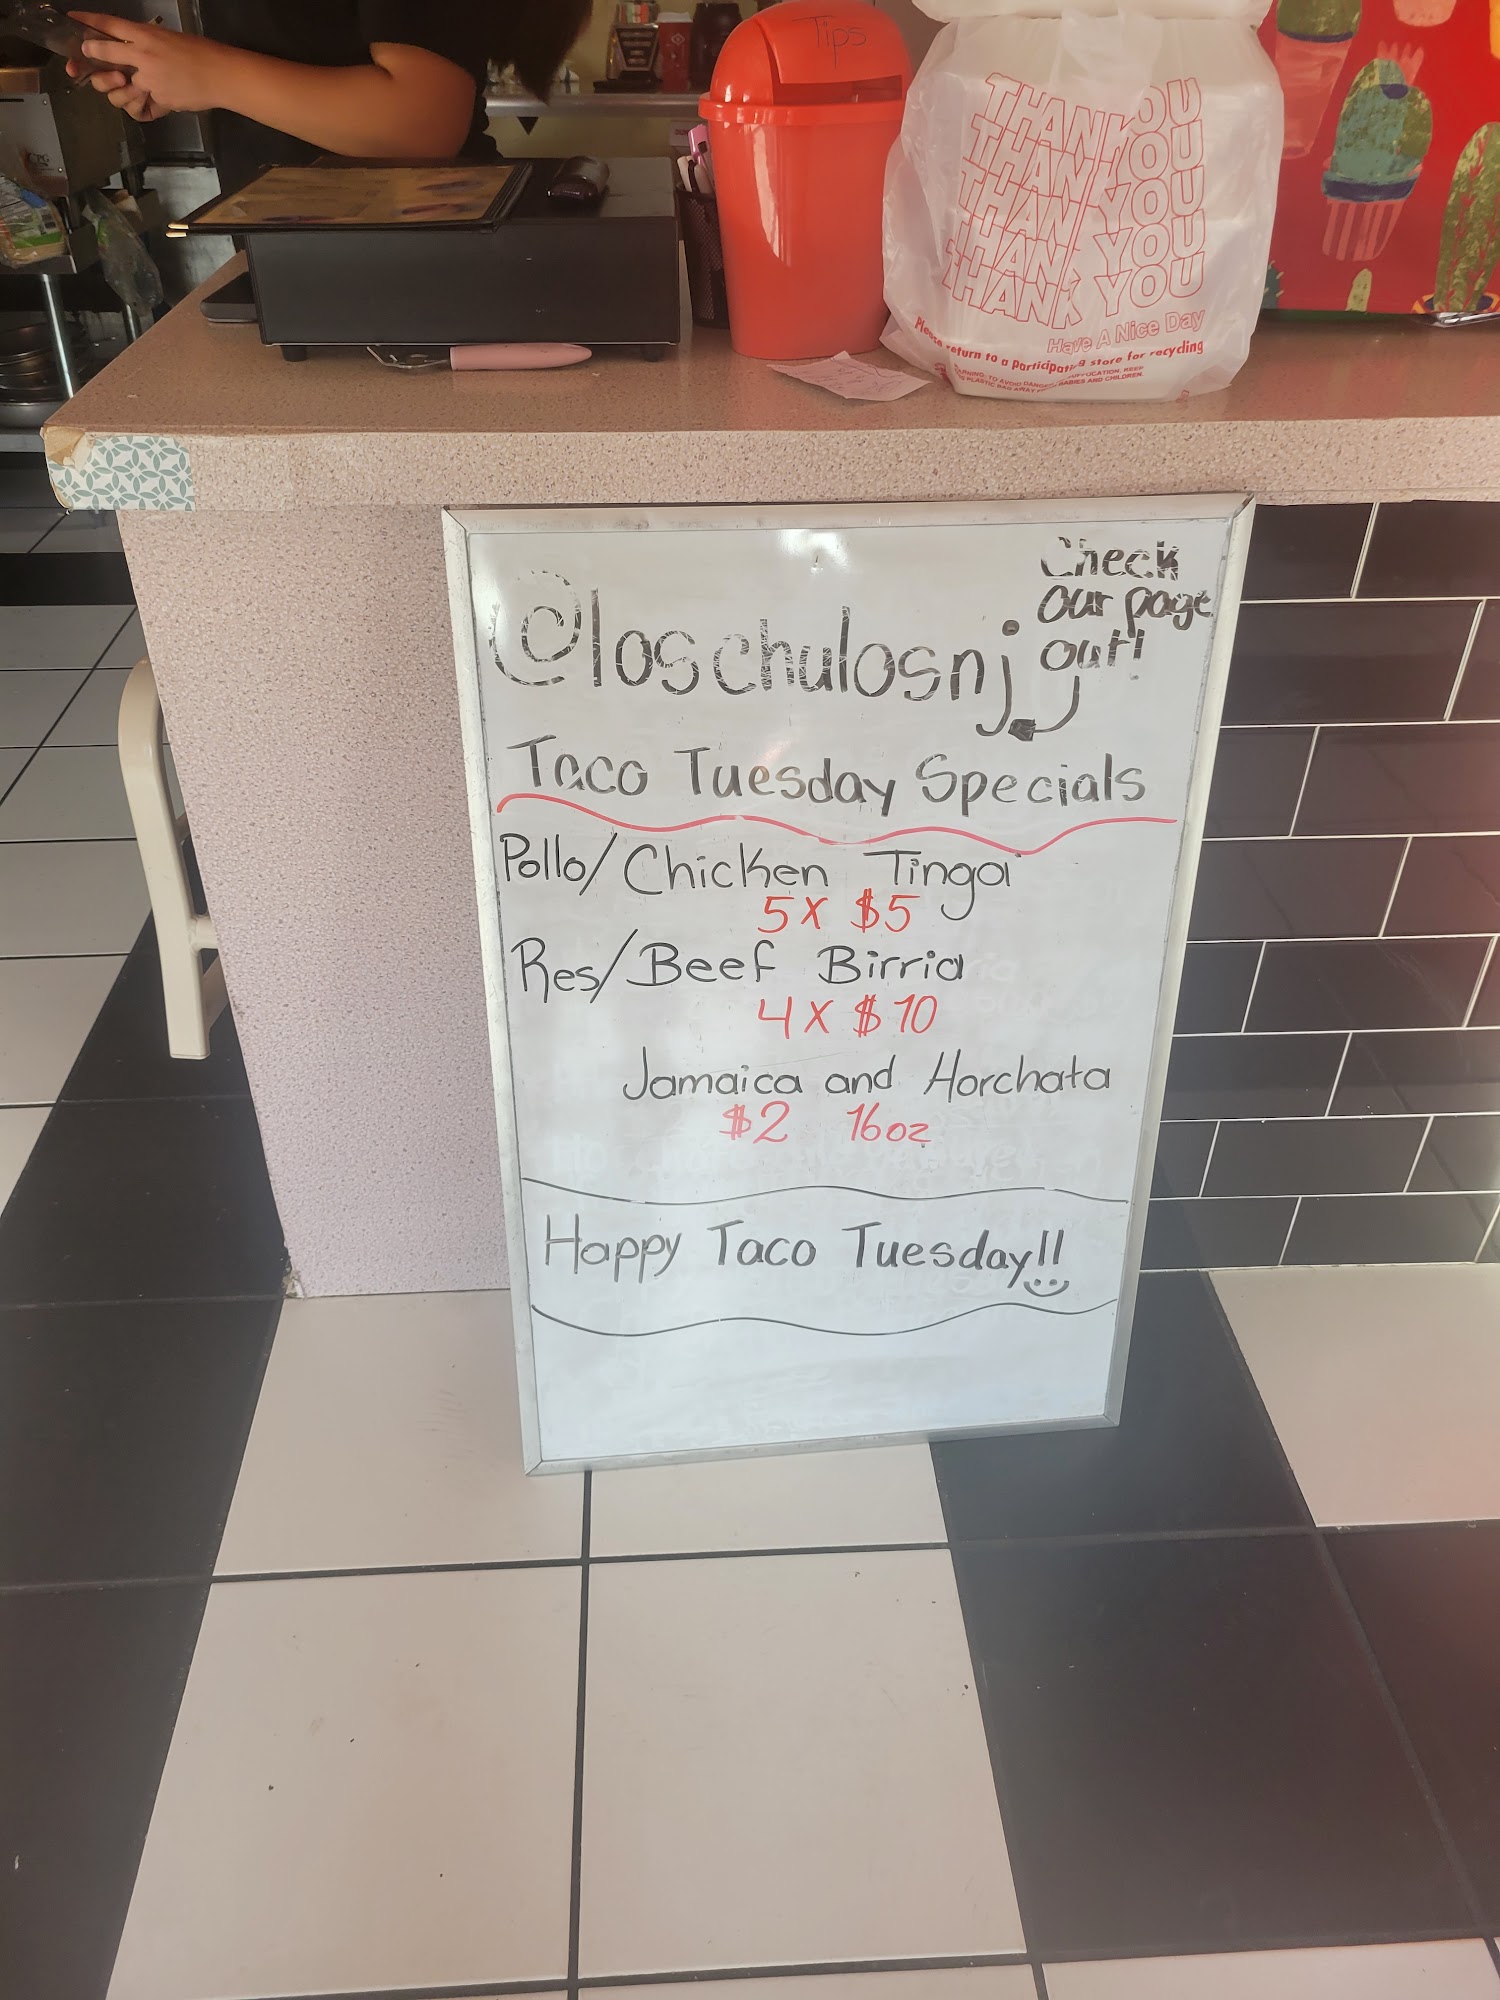 Tips
THANK YOU
THANK YOU
THANK YOU
THANK YOU
THANK YOU
Have A Nice Day
Please return to a participating store for recycling
WARNING: TO AVOID DANGER
@loschulosnj
Check
our page
out!
Taco Tuesday Specials
Pollo/Chicken Tinga
5 X $5
Res/Beef Birria
4 X $10
Jamaica and Horchata
$2 16oz
Happy Taco Tuesday!!